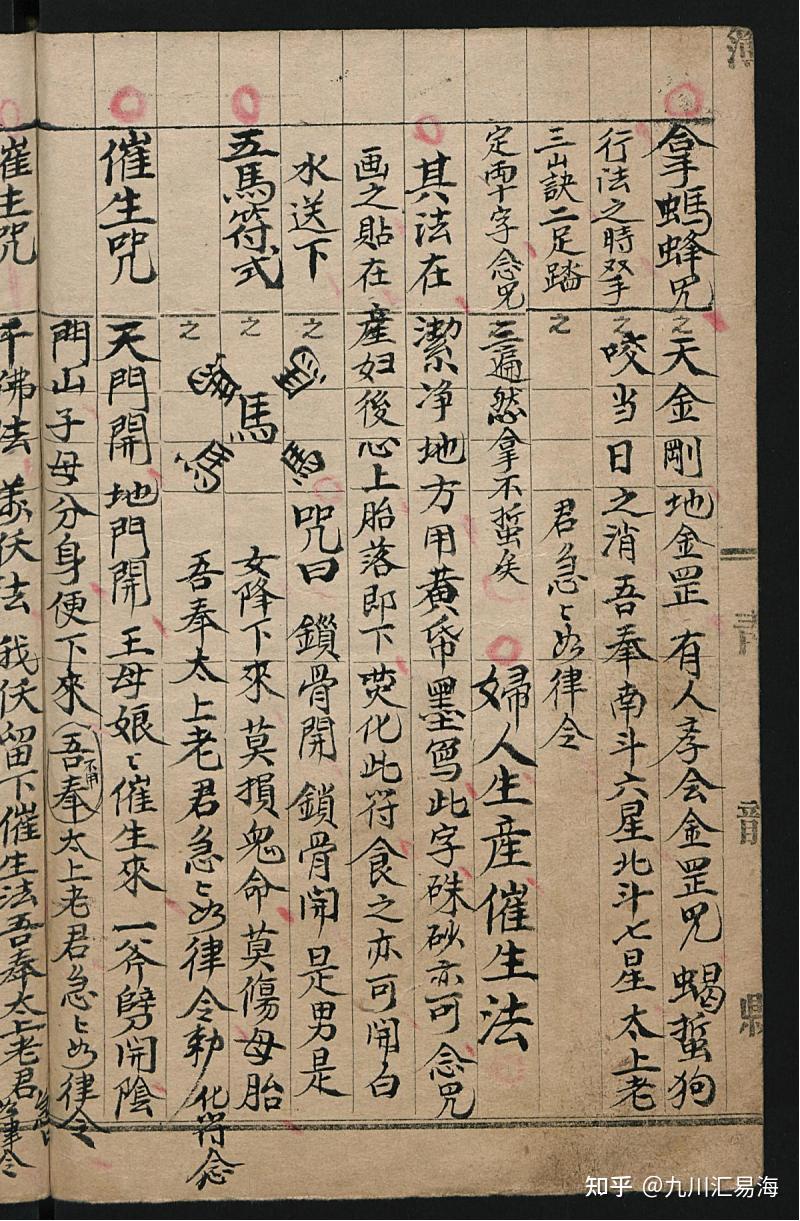 拿螞蜂咒 之 天金剛地金罡 有人孝会金罡咒 蝎蜇狗
行法之時双手 之 咬当日之消 吾奉南斗六星北斗七星 太上老
三山訣二足踏 之 君急〻如律令
定 字 念咒 三遍然拿不蜇矣 婦人生產催生法
其法在 潔净地方用黄帋墨写此字硃砂亦可 念咒
画之貼在 產妇後心上胎落即下 焚化此符食之亦可開白
水送下 之 咒曰 鎖骨開 鎖骨開 是男是
五馬符式 之 馬 馬 女降下來 莫損兒命 莫傷母胎
之 吾奉太上老君急〻如律令勅 化符念
催生咒 天門開 地門開 王母娘〻催生來 一斧劈開陰
門山 子母分身便下來(吾奉太上老君急〻如律令
不用
催生咒 千佛法 萬佛法 我佛留下催生法 吾奉太上老君急〻如律令
知乎 @九川汇易海